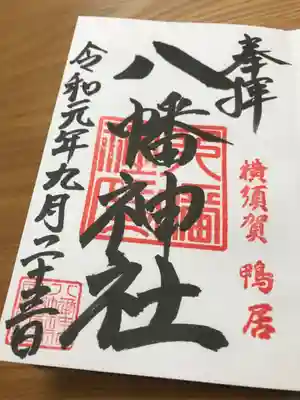 奉拝
横須賀 鴨居
八幡神社
令和元年九月二十三日